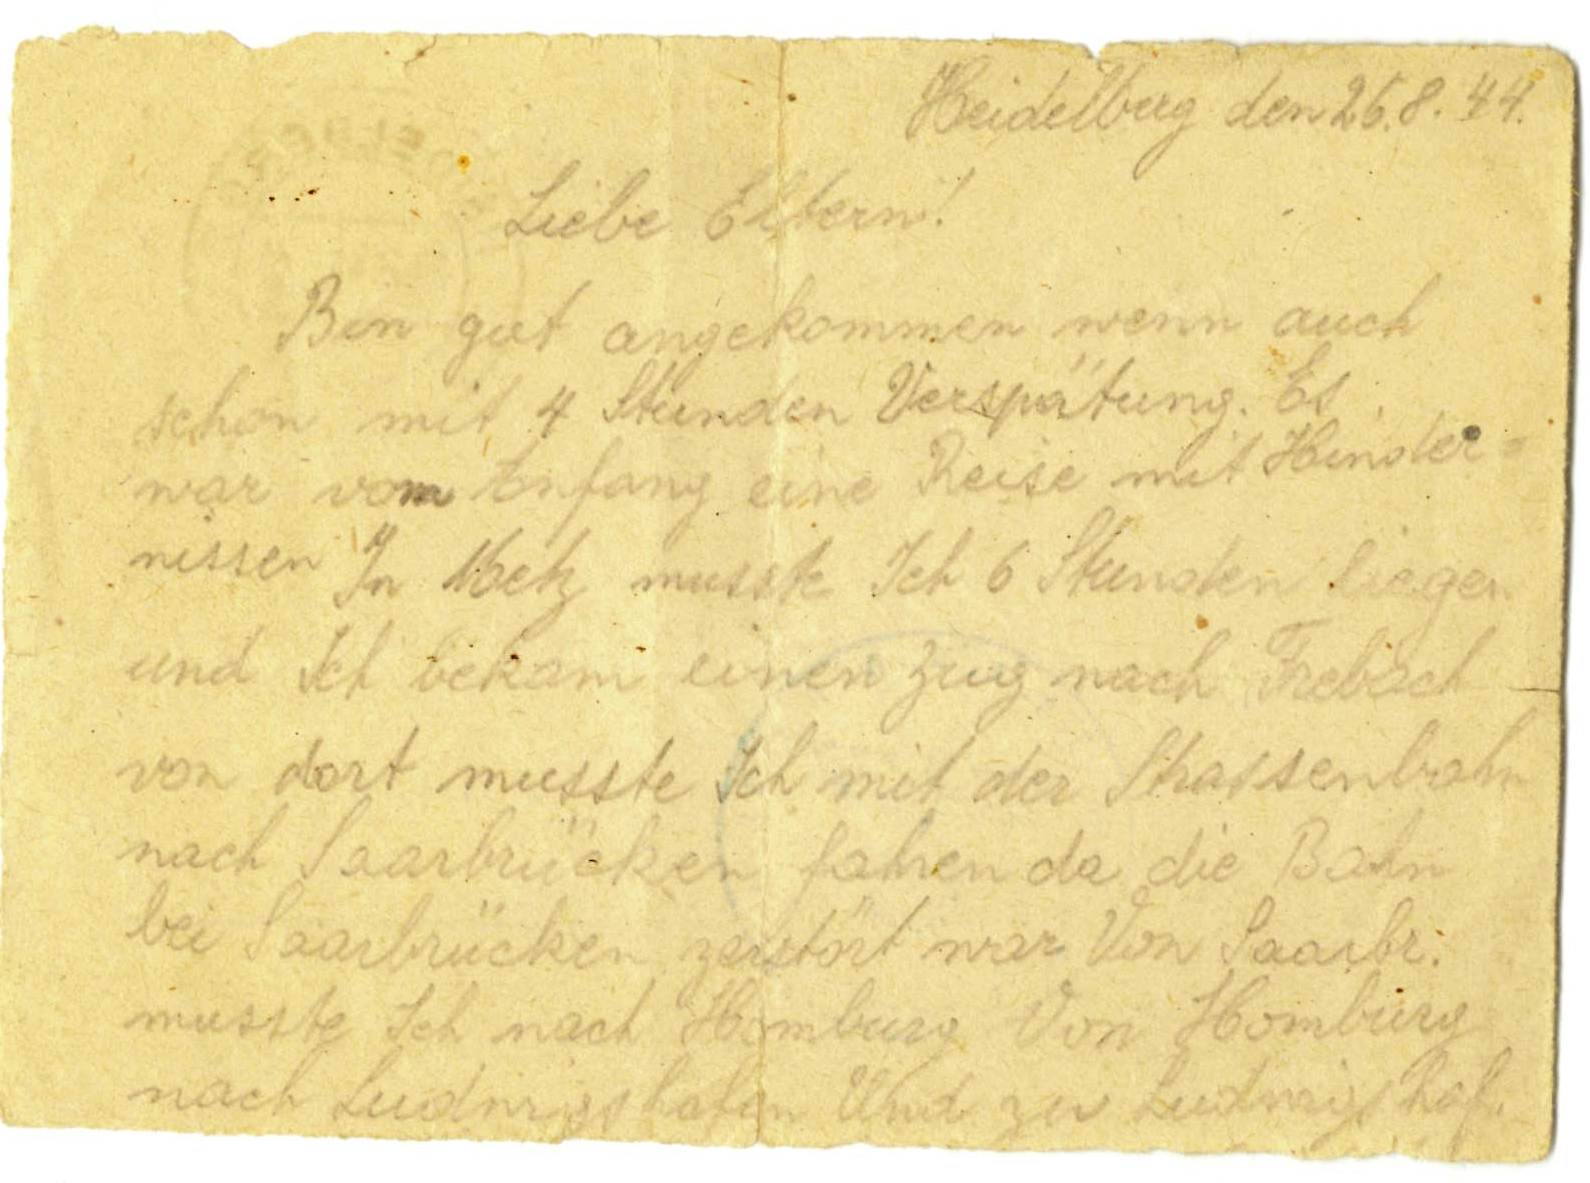 Heidelberg den 26.8.44.
Liebe Eltern!
Bin gut angekommen wenn auch
schon mit 4 Stunden Verspätung. Es
war vom Anfang eine Reise mit Hinder=
nissen In Metz musste Ich 6 Stunden liegen
und Ich bekam einen Zug nach
von dort musste Ich mit der Strassenbahn
nach Saarbrücken fahren da die Bahn
bei Saarbrücken zerstört war Von Saarbr.
musste Ich nach Homburg Von Homburg
nach Ludwigshafen Und zu Ludwigshaf.